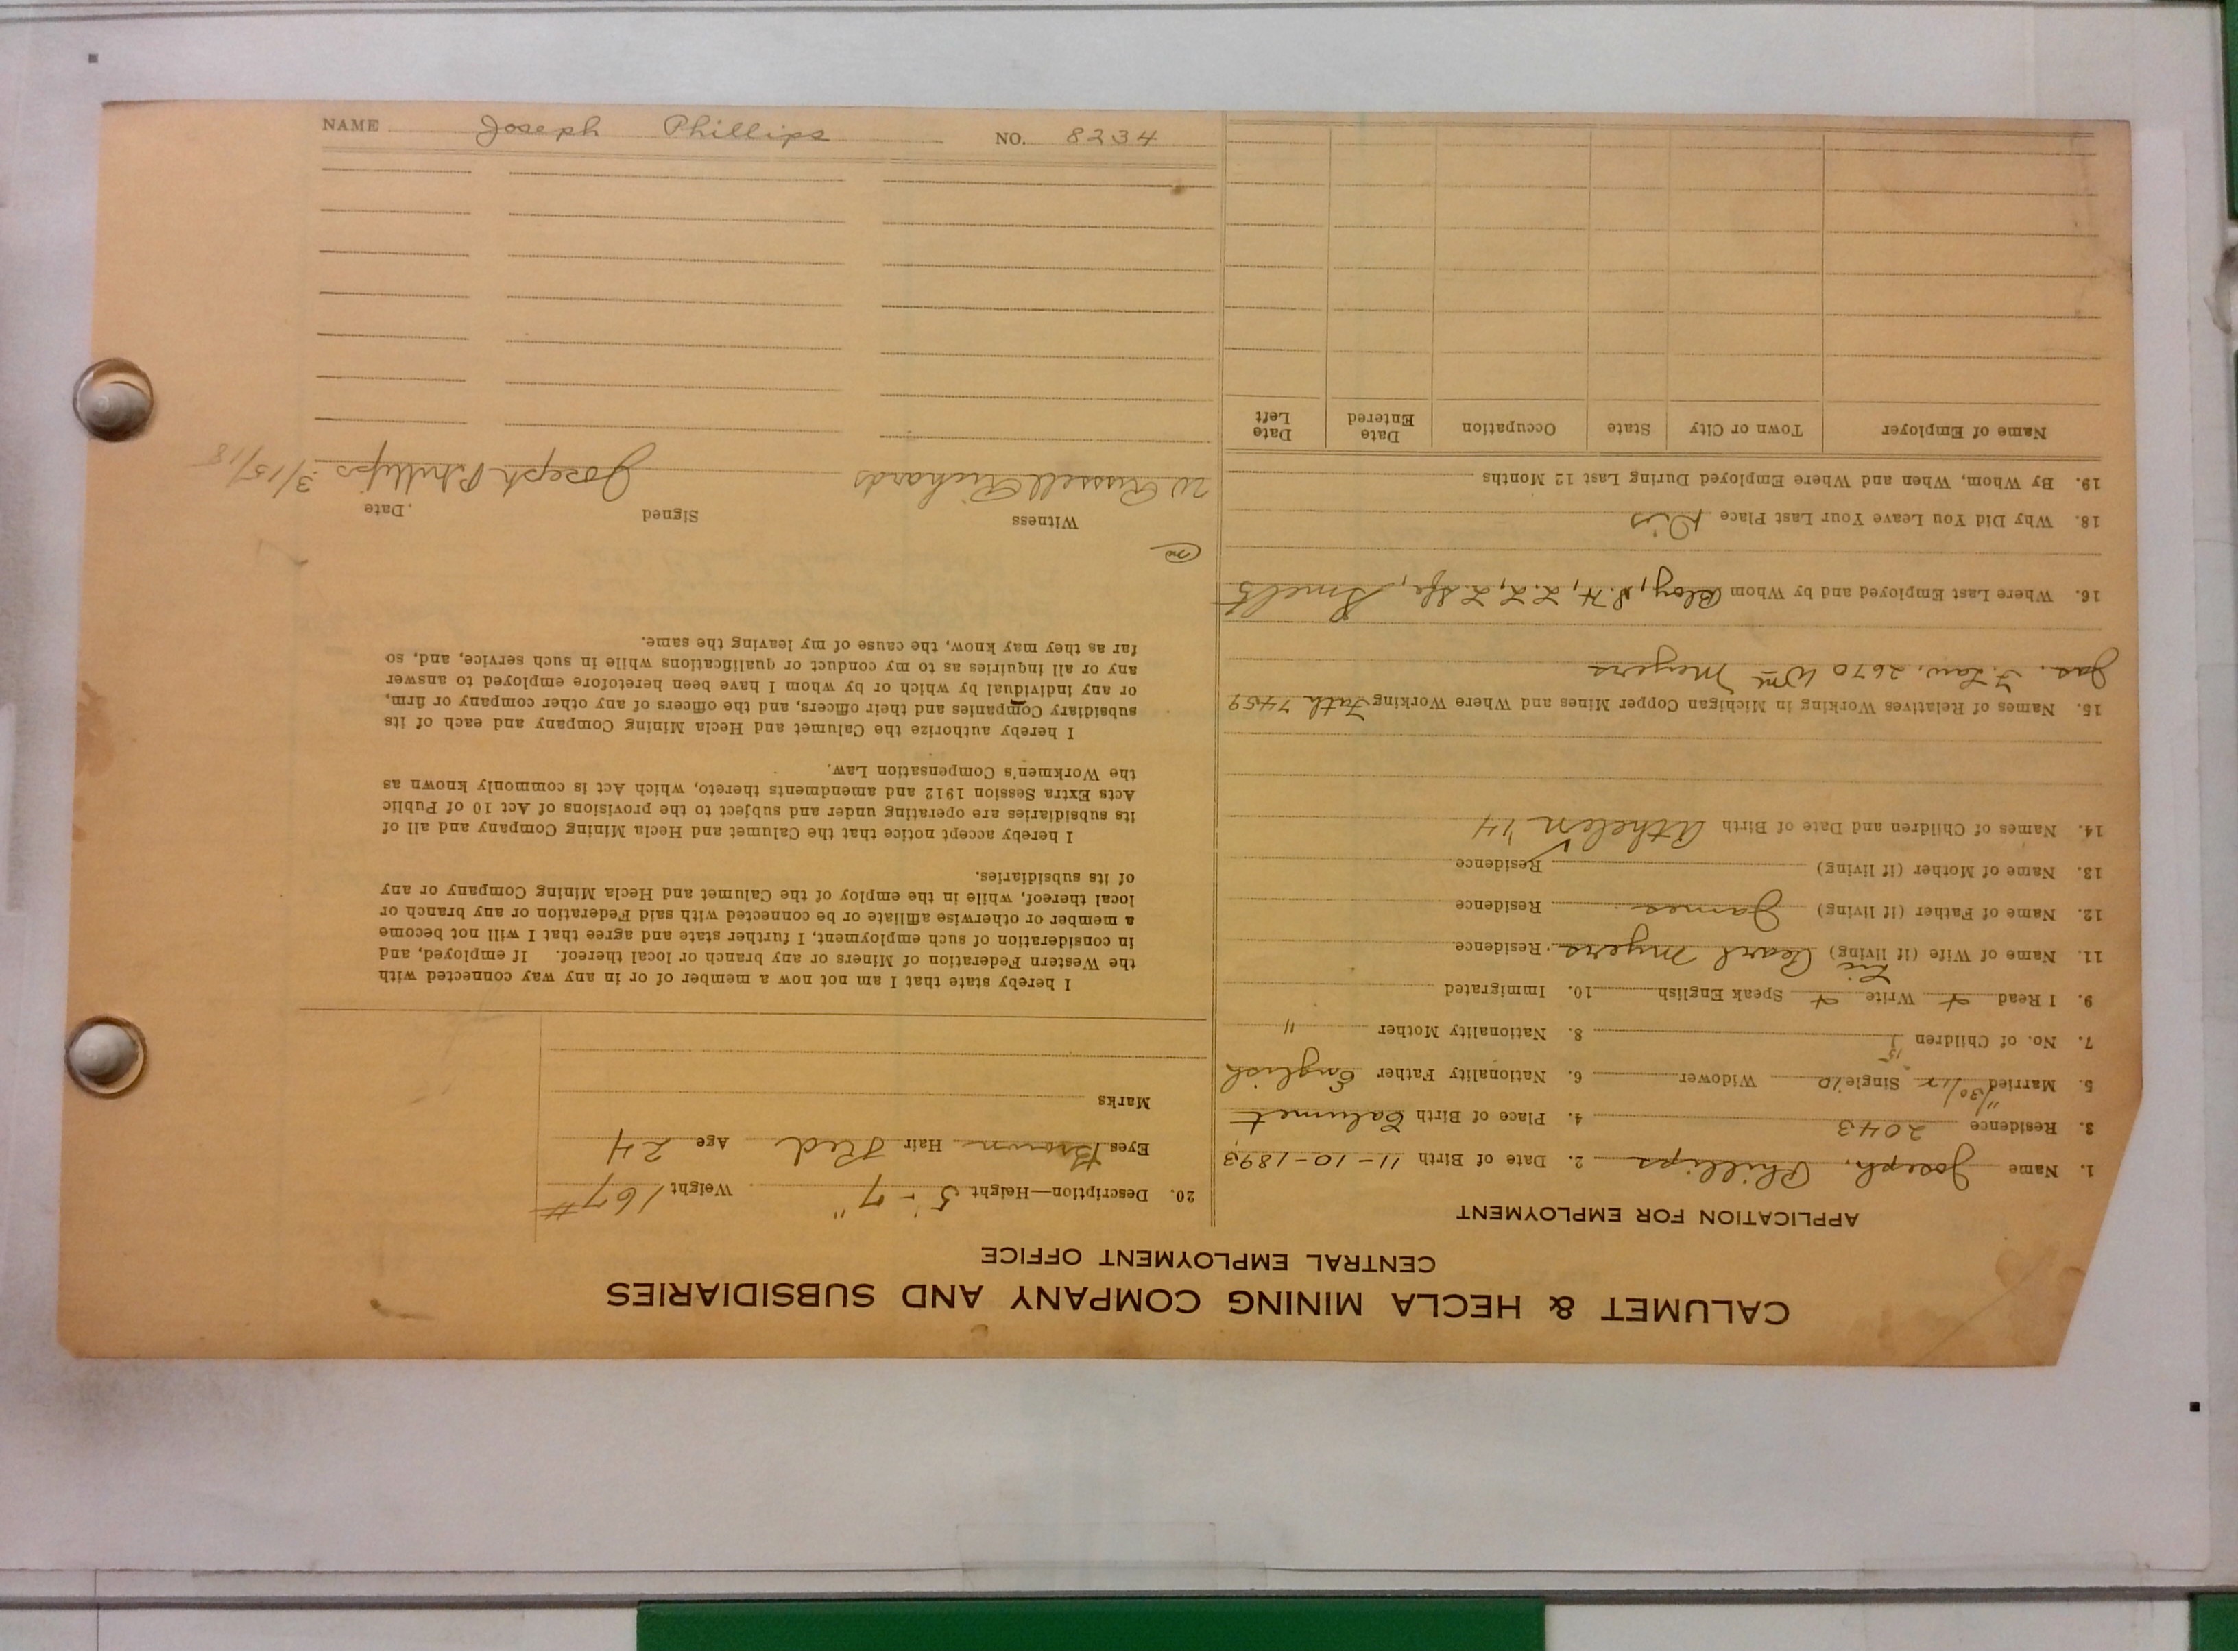 CALUMET & HECLA MINING COMPANY AND SUBSIDIARIES
CENTRAL EMPLOYMENT OFFICE
APPLICATION FOR EMPLOYMENT
1. Name Joseph Phillips 2. Date of Birth 11-10-1893
3. Residence 2043 4. Place of Birth Calumet
5. Married Single Widower 6. Nationality Father English
7. No. of Children 1 8. Nationality Mother "
9. I Read Write Speak English 10. Immigrated
11. Name of Wife (if living) Pearl Myers Residence
12. Name of Father (if living) James Residence
13. Name of Mother (if living) Residence
14. Names of Children and Date of Birth Athelen '14
15. Names of Relatives Working in Michigan Copper Mines and Where Working Fath 7459
Jas. F. Law. 2670 Wm Meyers
16. Where Last Employed and by Whom Smelt
18. Why Did You Leave Your Last Place Dis
19. By Whom, When and Where Employed During Last 12 Months
Name of Employer Town or City State Occupation Date Entered Date Left
20. Description—Height 5'-7" Weight 167#
Eyes Brown Hair Red Age 24
Marks
I hereby state that I am not now a member of or in any way connected with
the Western Federation of Miners or any branch or local thereof. If employed, and
in consideration of such employment, I further state and agree that I will not become
a member or otherwise affiliate or be connected with said Federation or any branch or
local thereof, while in the employ of the Calumet and Hecla Mining Company or any
of its subsidiaries.
I hereby accept notice that the Calumet and Hecla Mining Company and all of
its subsidiaries are operating under and subject to the provisions of Act 10 of Public
Acts Extra Session 1912 and amendments thereto, which Act is commonly known as
the Workmen's Compensation Law.
I hereby authorize the Calumet and Hecla Mining Company and each of its
subsidiary Companies and their officers, and the officers of any other company or firm,
or any individual by which or by whom I have been heretofore employed to answer
any or all inquiries as to my conduct or qualifications while in such service, and, so
far as they may know, the cause of my leaving the same.
Witness Signed Date
W Russell Richards Joseph Phillips 3/15/18
NAME Joseph Phillips NO. 8234